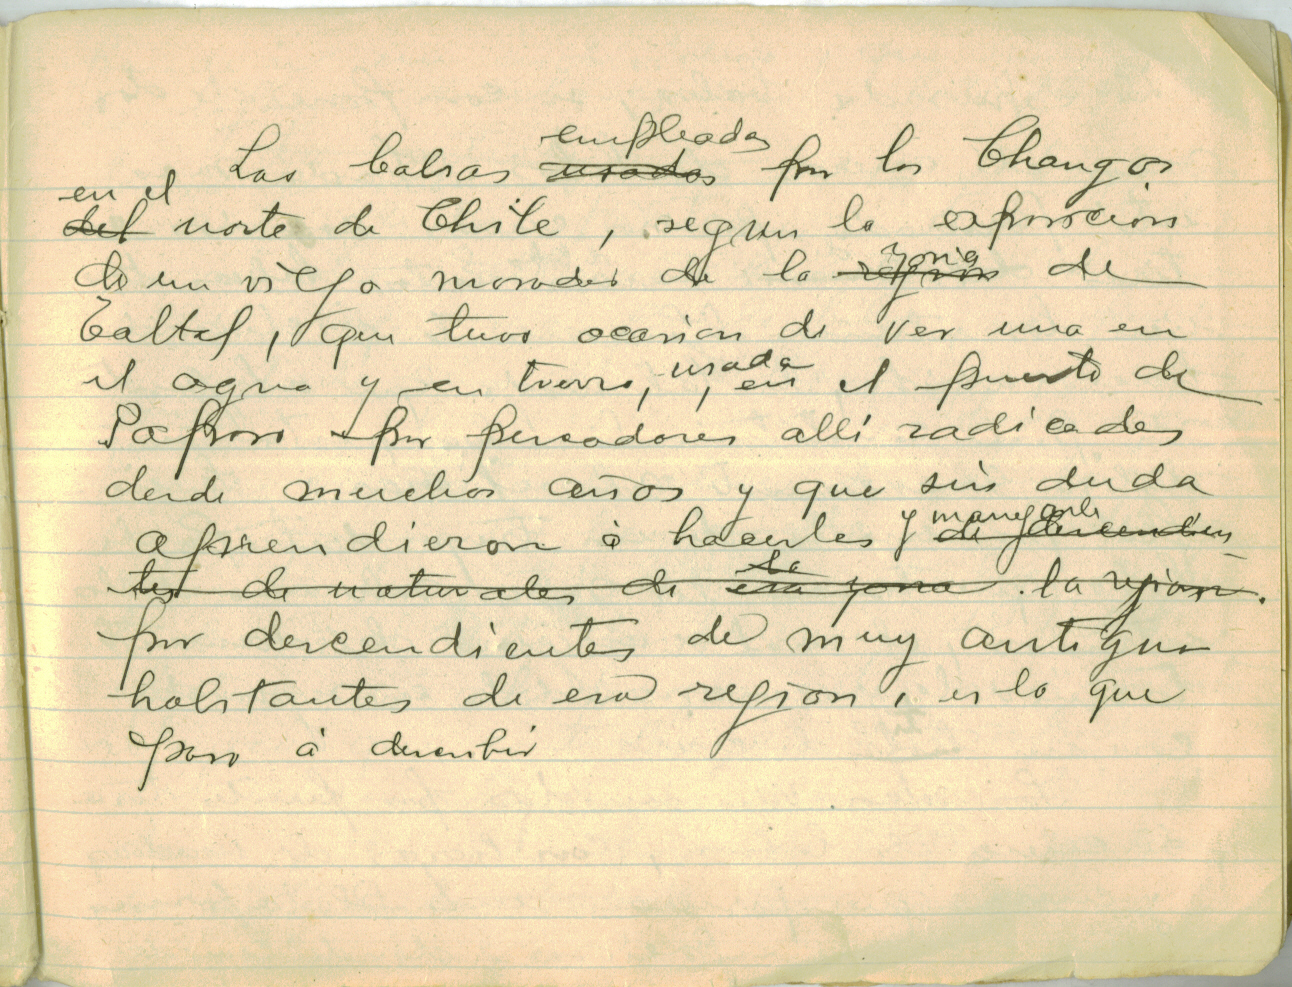 Las balsas empleadas usadas por los Changos
en el del norte de Chile, segun la exposicion
de un viejo morador de la zona region de
Taltal, que tuvo ocasion de ver una en
el agua y en tierra, usada, en el puerto de
Paposo por pescadores alli radicados
desde muchos años y que sin duda
aprendieron á hacerlas y manejarlas de descendien-
tes de naturales de esa zona la region.
por descendientes de muy antiguos
habitantes de esa region, es lo que
paso á describir